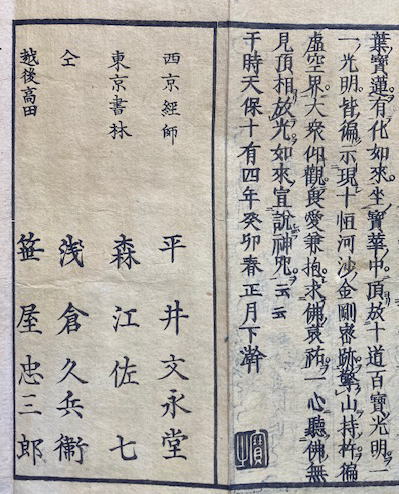 葉寶蓮有化如來坐寶華中頂放十道百寶光明一
一光明皆徧示現十恒河沙金剛密跡擎山持杵徧
虛空界大衆仰觀畏愛兼抱求佛哀祐一心聽佛無
見頂相放光如來宣說神咒云云
于時天保十有四年癸卯春正月下澣
西京經師 平井文永堂
東京書林 森江佐七
仝 浅倉久兵衞
越後高田 笹屋忠三郎